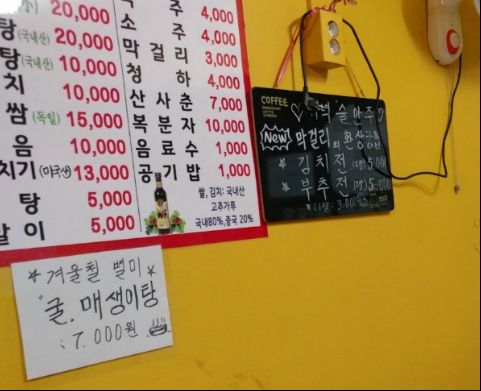 20,000
탕(국내산) 20,000
탕(국내산) 10,000
치 10,000
쌈(독일) 15,000
음 10,000
치기(미국산) 13,000
탕 5,000
이 5,000
주 4,000
소 주 4,000
막 걸 리 3,000
청 하 4,000
산 사 춘 7,000
복 분 자 10,000
음 료 수 1,000
공 기 밥 1,000
쌀, 김치: 국내산
고추가루
국내80%,중국 20%
COFFEE
술안주
New 막걸리의 환상궁합
김치전 5,000
부추전 5,000
3,000
겨울철 별미
굴. 매생이탕
: 7.000원